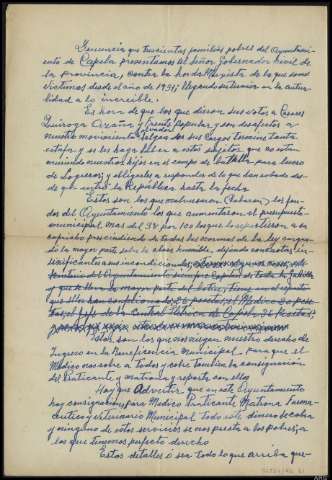 Denuncia que trescientas familias pobres del Ayuntami-
ento de Capela presentamos al Señor Gobernador Civil de
la provincia, contra la horda Marxista de la que somos
victimas desde el año de 1931; llegando su terror en la actua-
lidad a lo increible.
Es hora de que los que dieron sus votos a Casares
Quiroga Azaña y Frente Popular y son desafectos a
nuestro movimiento salgan de sus cargos termine tanta
estafa y se les haga saber a estos sujetos que no estan
muriendo nuestros hijos en el campo de batalla para lucro
de Logreros y obligarles a responder de lo que han robado desde
que entró la República hasta la fecha
Estos son los que malversaron (Robaron) los fon-
dos del Ayuntamiento los que aumentaron el presupuesto
municipal mas del 38 por 100 los que lo repartieron a
su capricho prescindiendo de todas las normas de la ley cargan-
do la mayor parte sobre la clase humilde, dejando cuotas in-
significantes a sus incondicionales,
Estos son los que nos niegan nuestro derecho de
Ingreso en la Beneficencia Municipal para que el
Médico nos cobre a todos y cobre tambien la consignación
del Practicante y matrona y reparta con ellos
Hay que Advertir que en este Ayuntamiento
hay consignación para Medico Practicante Matrona Farma-
ceutico y Veterinario Municipal todo este dinero se cobra
y ninguno de estos servicios se nos presta a los pobres, a
los que tenemos perfecto derecho
Estos detalles ó sea todo lo que arriba que-